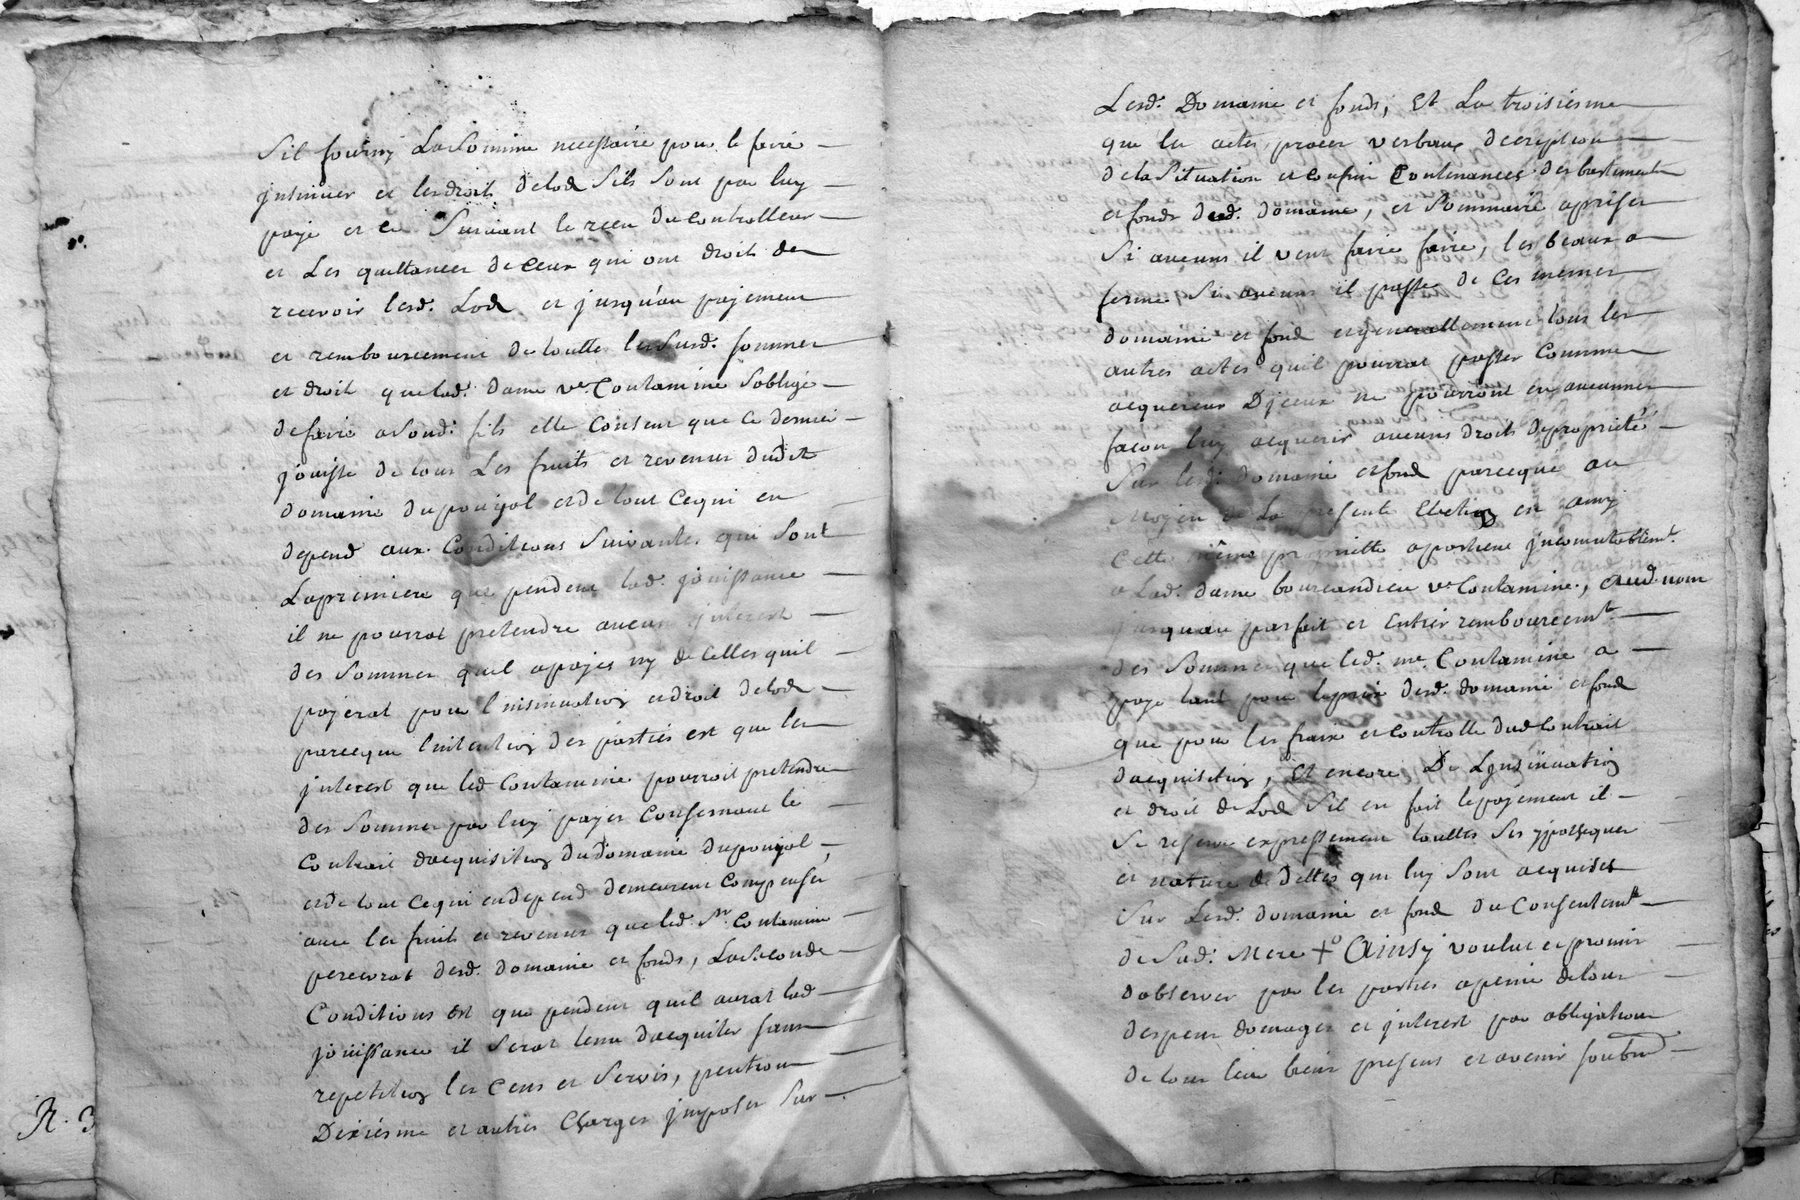 Sil fourny La Somme necessaire pour le faire
jnsinuer et les droits de lod Sils Sont par luy
payé et ce Suivant le receu du controlleur
et Les quittances de ceux qui ont droit de
recevoir lesd. Lod et jusqu'au payement
et remboursement de toutte les Susd. sommes
et droit que lad. dame ve. Contamine soblige
de faire a Sond. fils elle Consent que ce dernier
jouisse de tous Les fruits et revenus dudit
domaine du poujol et de tout cequi en
depend aux Conditions Suivantes qui Sont
Lapremiere que pendent lad. jouissance
il ne pourrat pretendre aucun jnterest
des Sommes quil apayes ny de celles quil
payerat pour l'insinuation et droit de lod
parceque lintention des parties est que les
jnterest que led Contamine pourroit pretendre
des Sommes par luy payes Consernant le
Contrait dacquisition du domaine du poujol,
et de tout cequi en depend demeurent Compensés
avec les fruits et revenus que led. Sr. Contamine
percevrat desd. domaine et fonds, La Seconde
Conditions est que pendent quil aurat lad
joüissance il Serat tenu dacquiter sans
repetition les Cens et Servis,
Dixiesme et autres Charges jmposes Sur
R. 3
Lesd. Domaine et fonds, Et La troisiesme
que les actes proces verbaux
de la Situation et confin Contenances des bastiments
et fonds dud. domaine, et Sommaire aprise
Si aucuns il veut faire faire, les beaux a
ferme Si aucuns il passe de ces memes
domaine et fond et generallement tous les
autres actes quil pourrat passer Comme
acquereur Djceux ne pourront en aucunnes
facon luy acquerir aucuns droits de propriété
Sur lesd. domaine et fond parceque au
Moyen de La presente Election en amy
Cette même propriette apartient jncomutablemt.
a Lad. dame bourcandieu ve. Contamine, aud. nom
jusquau parfait et Entier remboursemt.
des Sommes que led. me. Contamine a
payé tant pour le prix desd. domaine et fond
que pour les fraix et controlle dud Contrait
dacquisition, Et encore De Lynsinuation
et droit de Lod Sil en fait le payement il
Se reserve expressement touttes Ses ypotheques
et nature de dettes qui luy Sont acquises
Sur Lesd. domaine et fond du Consentemt
de Sad. Mere + Ainsy voulut et promis
dobserver par les parties apeine de tous
despens domages et jnterest par obligation
de tous leur biens presens et avenir